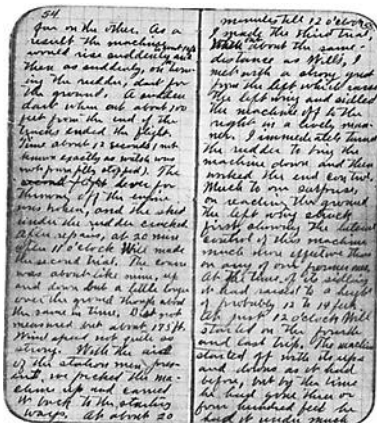 54
far on the other. As a
result the machine
would rise suddenly and
then as suddenly, on turn-
ing the rudder, dart for
the ground. A sudden
dart when out about 100
feet from the end of the
tracks ended the flight.
Time about 12 seconds (not
known exactly as watch was
not promptly stopped). The
second flight lever for
throwing off the engine
was broken, and the skid
under the rudder cracked
After repairs, at 20 min.
after 11 o'clock Will made
the second trial. The course
was about like mine, up
and down but a little longer
over the ground though about
the same in time. Dist. not
measured but about 175 ft.
Wind speed not quite so
strong. With the aid
of the station men pres-
ent, we picked the ma-
chine up and carried
it back to the starting
ways. At about 20
minutes till 12 o'clock
I made the third trial.
When about the same
distance as Will's, I
met with a strong gust
from the left which raised
the left wing and sidled
the machine off to the
right in a lively man-
ner. I immediately turned
the rudder to bring the
machine down and then
worked the end control.
Much to our surprise,
on reaching the ground
the left wing struck
first, showing the lateral
control of this machine
much more effective than
on any of our former ones.
At the time of its sidling
it had raised to a height
of probably 12 to 14 feet.
At just 12 o'clock Will
started on the fourth
and last trip. The machine
started off with its ups
and downs as it had
before, but by the time
he had gone three or
four hundred feet he
had it under much